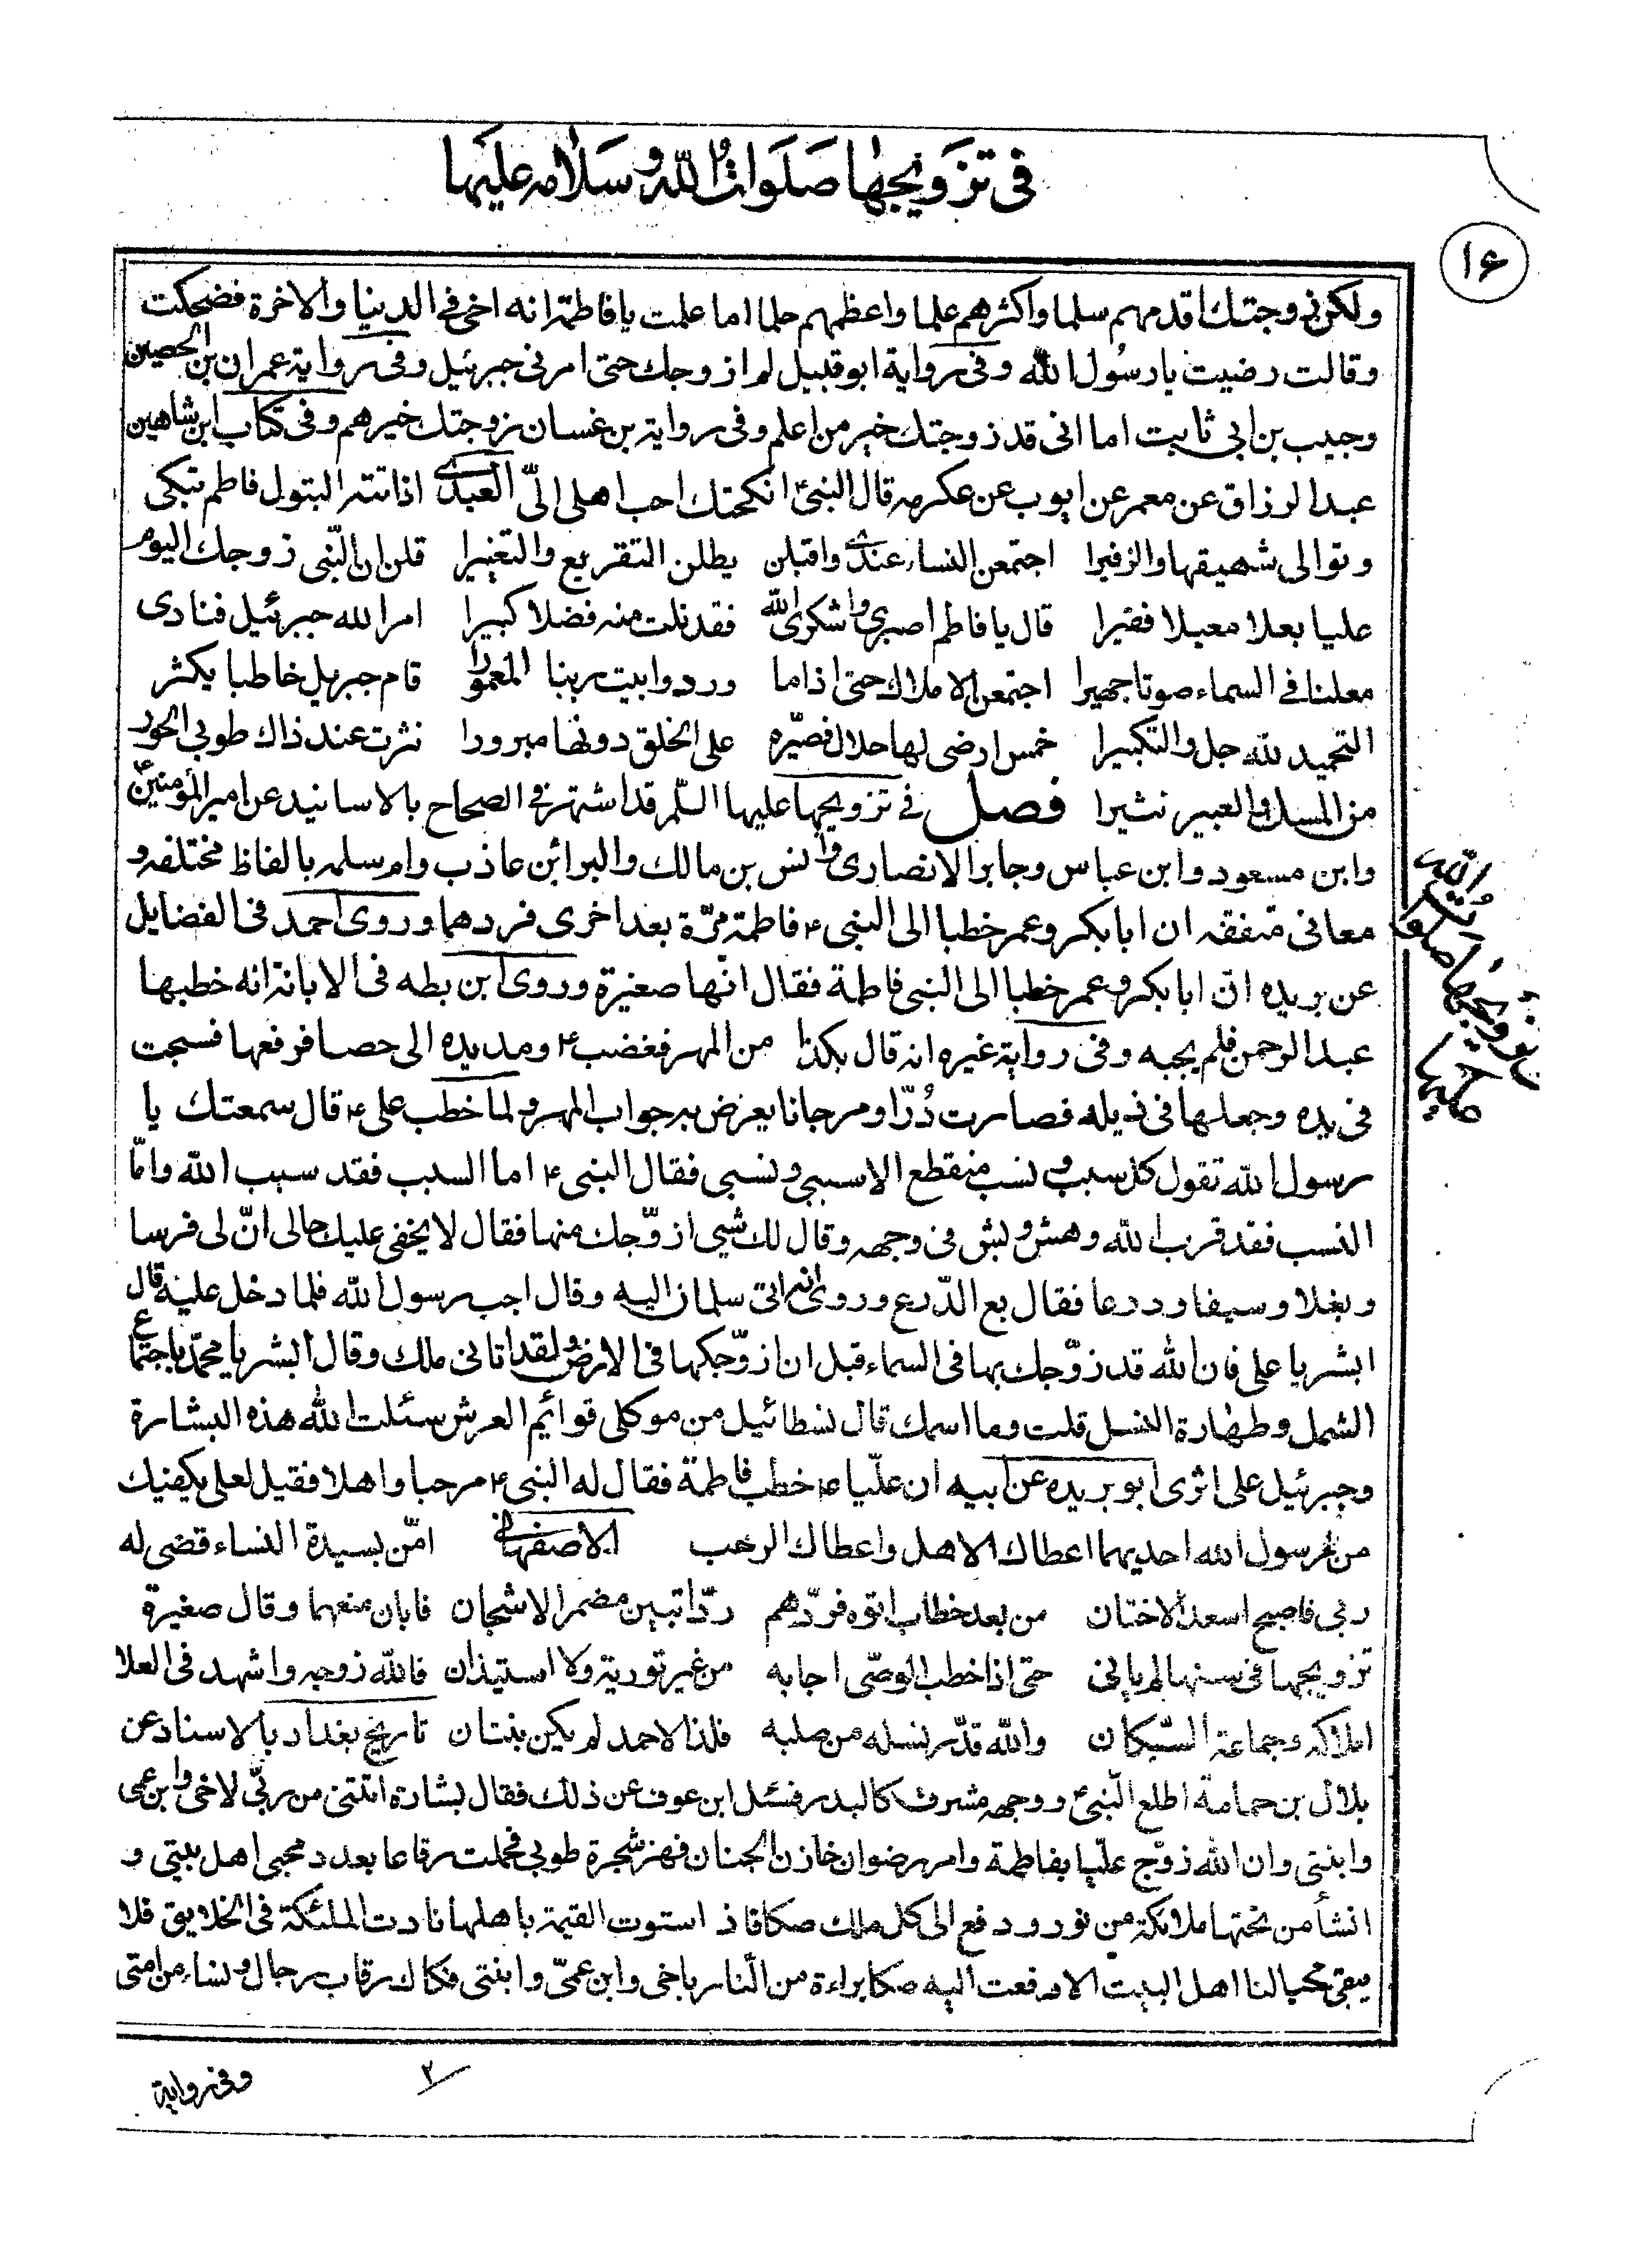 فى تزويجها صلوات الله وسلامه عليها
۱۶
ولكن زوجتك اقدمهم سلما واكثرهم علما واعظمهم حلما اما علمت يا فاطمة انه اخى فى الدنيا والاخرة فضحكت
وقالت رضيت يا رسول الله وفى رواية ابو قبيل لم ازوجك حتى امرنى جبرئيل وفى رواية عمران بن الحصين
وحبيب بن ابى ثابت اما انى قد زوجتك خير من اعلم وفى رواية بن غسان زوجتك خيرهم وفى كتاب ابن شاهين
عبد الرزاق عن معمر عن ايوب عن عكرمه قال النبى ص انكحتك احب اهلى الىّ العبدى اذ اتته البتول فاطم تبكى
وتوالى شهيقها والزفيرا اجتمعن النساء عندى واقبلن يطلن التقريع والتعييرا قلن ان النّبى زوجك اليوم
عليا بعلا معيلا فقيرا قال يا فاطم اصبرى واشكرى الله فقد نلت منه فضلا كبيرا امر الله جبرئيل فنادى
معلنا فى السماء صوتا جهيرا اجتمعن الاملاك حتى اذا ما وردوا بيت ربنا المعمورا قام جبريل خاطبا يكثر
التحميد لله جل والتكبيرا خمس ارضى لها حلال فصيّره على الخلق دونها مبرورا نثرت عند ذاك طوبى الحور
من المسك والعبير نثيرا فصل فى تزويجها عليها السّلم قد اشتهر فى الصحاح بالاسانيد عن امير المؤمنين ع
وابن مسعود وابن عباس وجابر الانصارى وانس بن مالك والبرائن عاذب وام سلمه بالفاظ مختلفه و
معانى متفقه ان ابا بكر وعمر خطبا الى النبى ص فاطمة مرّة بعد اخرى فردهما وروى احمد فى الفضايل
عن بريده انّ ابا بكر وعمر خطبا الى النبى فاطمة فقال انّها صغيرة وروى ابن بطه فى الابانة انه خطبها
عبد الرحمن فلم يجبه وفى رواية غيره انه قال بكذا من المهر فغضب ص ومد يده الى حصا فرفعها فسبحت
فى يده وجعلها فى ذيله فصارت دُرّا ومرجانا يعرض به جواب المهر ولما خطب على ع قال سمعتك يا
رسول الله تقول كل سبب ونسب منقطع الا سببى ونسبى فقال النبى ص اما السبب فقد سبب الله وامّا
النسب فقد قرب الله وهش وبش فى وجهه وقال لك شيى ازوّجك منها فقال لا يخفى عليك حالى انّ لى فرسا
وبغلا وسيفا ودرعا فقال بع الدّرع وروى انه اتى سلمان اليه وقال اجب رسول الله فلما دخل عليه قال
ابشر يا على فان الله قد زوّجك بها فى السماء قبل ان ازوّجكها فى الارض ولقد اتانى ملك وقال ابشر يا محمّد باجتماع
الشمل وطهارة النسل قلت وما اسمك قال نسطائيل من موكلى قوائم العرش سئلت الله هذه البشارة
وجبرئيل على اثرى ابو بريده عن ابيه ان عليّا ع خطب فاطمة فقال له النبى ص مرحبا واهلا فقيل لعلى يكفيك
من رسول الله احديهما اعطاك الاهل واعطاك الرحب الاصفهانى امّن بسيدة النساء قضى له
ربى فاصبح اسعد الاختان من بعد خطاب اتوه فردّهم ردّا تبين مضمر الاشجان فابان منعهما وقال صغيرة
تزويجها فى سنها لم يانى حتى اذا خطب الوصى اجابه من غير تورية ولا استيذان فالله زوجه واشهد فى العلا
املاكه وجماعة السّكان والله قدّر نسله من صلبه فلذا لاحمد لم يكن بنتان تاريخ بغداد بالاسناد عن
بلال بن حمامة اطلع النّبى ص ووجهه مشرف كالبدر فسئل ابن عوف عن ذلك فقال بشارة اتتنى من ربّى لاخى وابن عمى
وابنتى وان الله زوّج عليّا بفاطمة وامر رضوان خازن الجنان فهز شجرة طوبى فحملت رقاعا بعدد محبى اهل بيتى و
انشأ من تحتها ملائكة من نور ودفع الى كل ملك صكا فاذ استوت القيمة باهلها نادت الملئكة فى الخلايق فلا
يبقى محب لنا اهل البيت الا دفعت اليه صكا براءة من النّار باخى وابن عمىّ وابنتى فكاك رقاب رجال ونساء من امتى
تزويجها صلوات الله
عليها
۲
وفى رواية